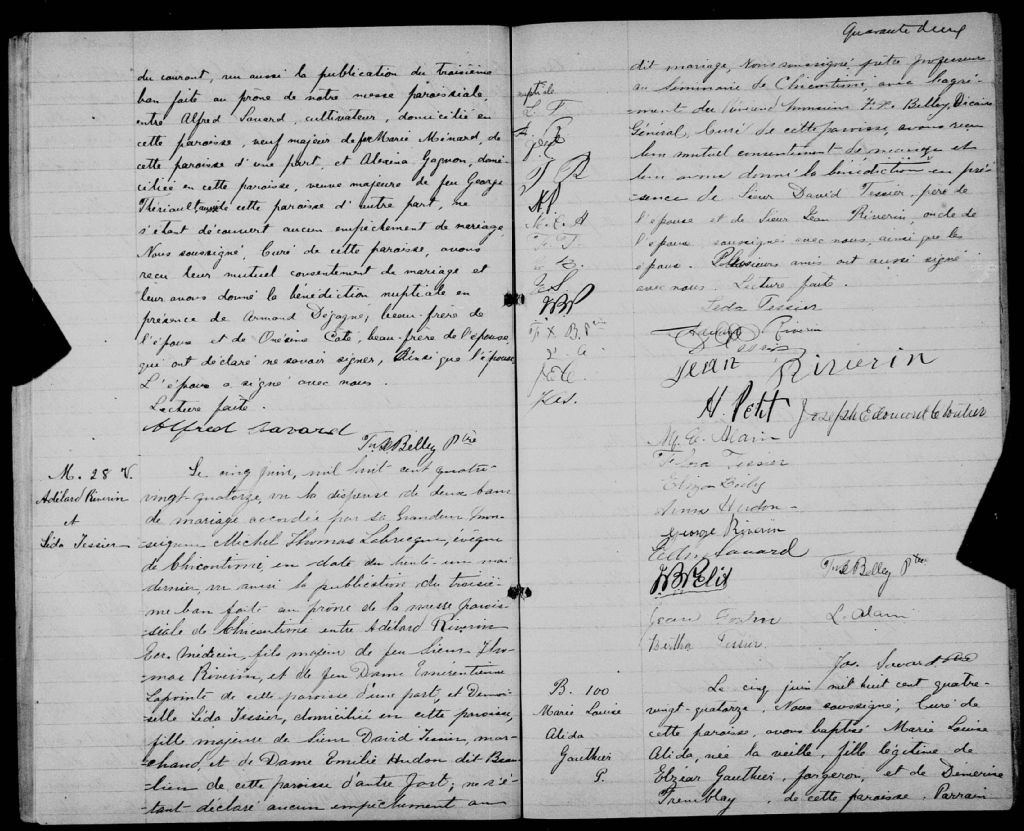 du courant, vu aussi la publication du troisième
ban faite au prône de notre messe paroissiale,
entre Alfred Savard, cultivateur, domicilié en
cette paroisse, veuf majeur de feu Marie Ménard, de
cette paroisse d'une part, et Alexina Gagnon, domi-
ciliée en cette paroisse, veuve majeure de feu George
Thériault, aussi de cette paroisse d'autre part, ne
s'étant découvert aucun empêchement de mariage
Nous soussigné, Curé de cette paroisse, avons
reçu leur mutuel consentement de mariage et
leur avons donné la bénédiction nuptiale en
présence de Armand Dégagné, beau-frère de
l'époux et de Onésime Coté, beau-frère de l'épouse,
qui ont déclaré ne savoir signer, ainsi que l'épouse,
L'époux a signé avec nous.
Lecture faite.
Alfred Savard
Frs X Belley Ptre
M. 28 V.
Adélard Riverin
et
Léda Tessier
Le cinq juin, mil huit cent quatre-
vingt quatorze, vu la dispense de deux bans
de mariage accordée par sa Grandeur Mon-
seigneur Michel Thomas Labrecque, évêque
de Chicoutimi, en date du trente-un mai
dernier, vu aussi la publication du troisiè-
me ban faite au prône de la messe parois-
-siale de Chicoutimi entre Adélard Riverin
Ecr. Médecin, fils majeur de feu Sieur Tho-
mas Riverin, et de feu Dame Emérentienne
Lapointe de cette paroisse d'une part, et Demoi-
selle Léda Tessier, domiciliée en cette paroisse,
fille majeure de Sieur David Tessier, mar-
-chand, et de Dame Emilie Hudon dit Beau-
-lieu de cette paroisse d'autre part; ne s'é-
-tant déclaré aucun empêchement au
Quarante deux
dit mariage, Nous soussigné prêtre Professeur
au Séminaire de Chicoutimi, avec l'agré-
ment du Révérend Monsieur F. X. Belley, Vicaire
Général, Curé de cette paroisse, avons reçu
leur mutuel consentement de mariage et
leur avons donné la bénédiction en pré-
sence de Sieur David Tessier, père de
l'épouse et de Sieur Jean Riverin oncle de
l'époux soussignés avec nous, ainsi que les
époux. Plusieurs amis ont aussi signé
avec nous. Lecture faite.
Léda Tessier
Adélard Riverin
Jean Riverin
H. Petit Joseph Edmond Cloutier
Flora Tessier
Anna Hudon
George Riverin
Savard
JB Petit
Frs X Belley Ptre
L. Alain
Bertha Tessier
Jos. Savard Ptre
B. 100
Marie Louise
Alida
Gauthier
P.
Le cinq juin mil huit cent quatre-
vingt-quatorze, Nous soussigné, Curé de
cette paroisse, avons baptisé Marie Louise
Alida, née la veille, fille légitime de
Elzéar Gauthier, forgeron, et de Démerise
Tremblay, de cette paroisse. Parrain